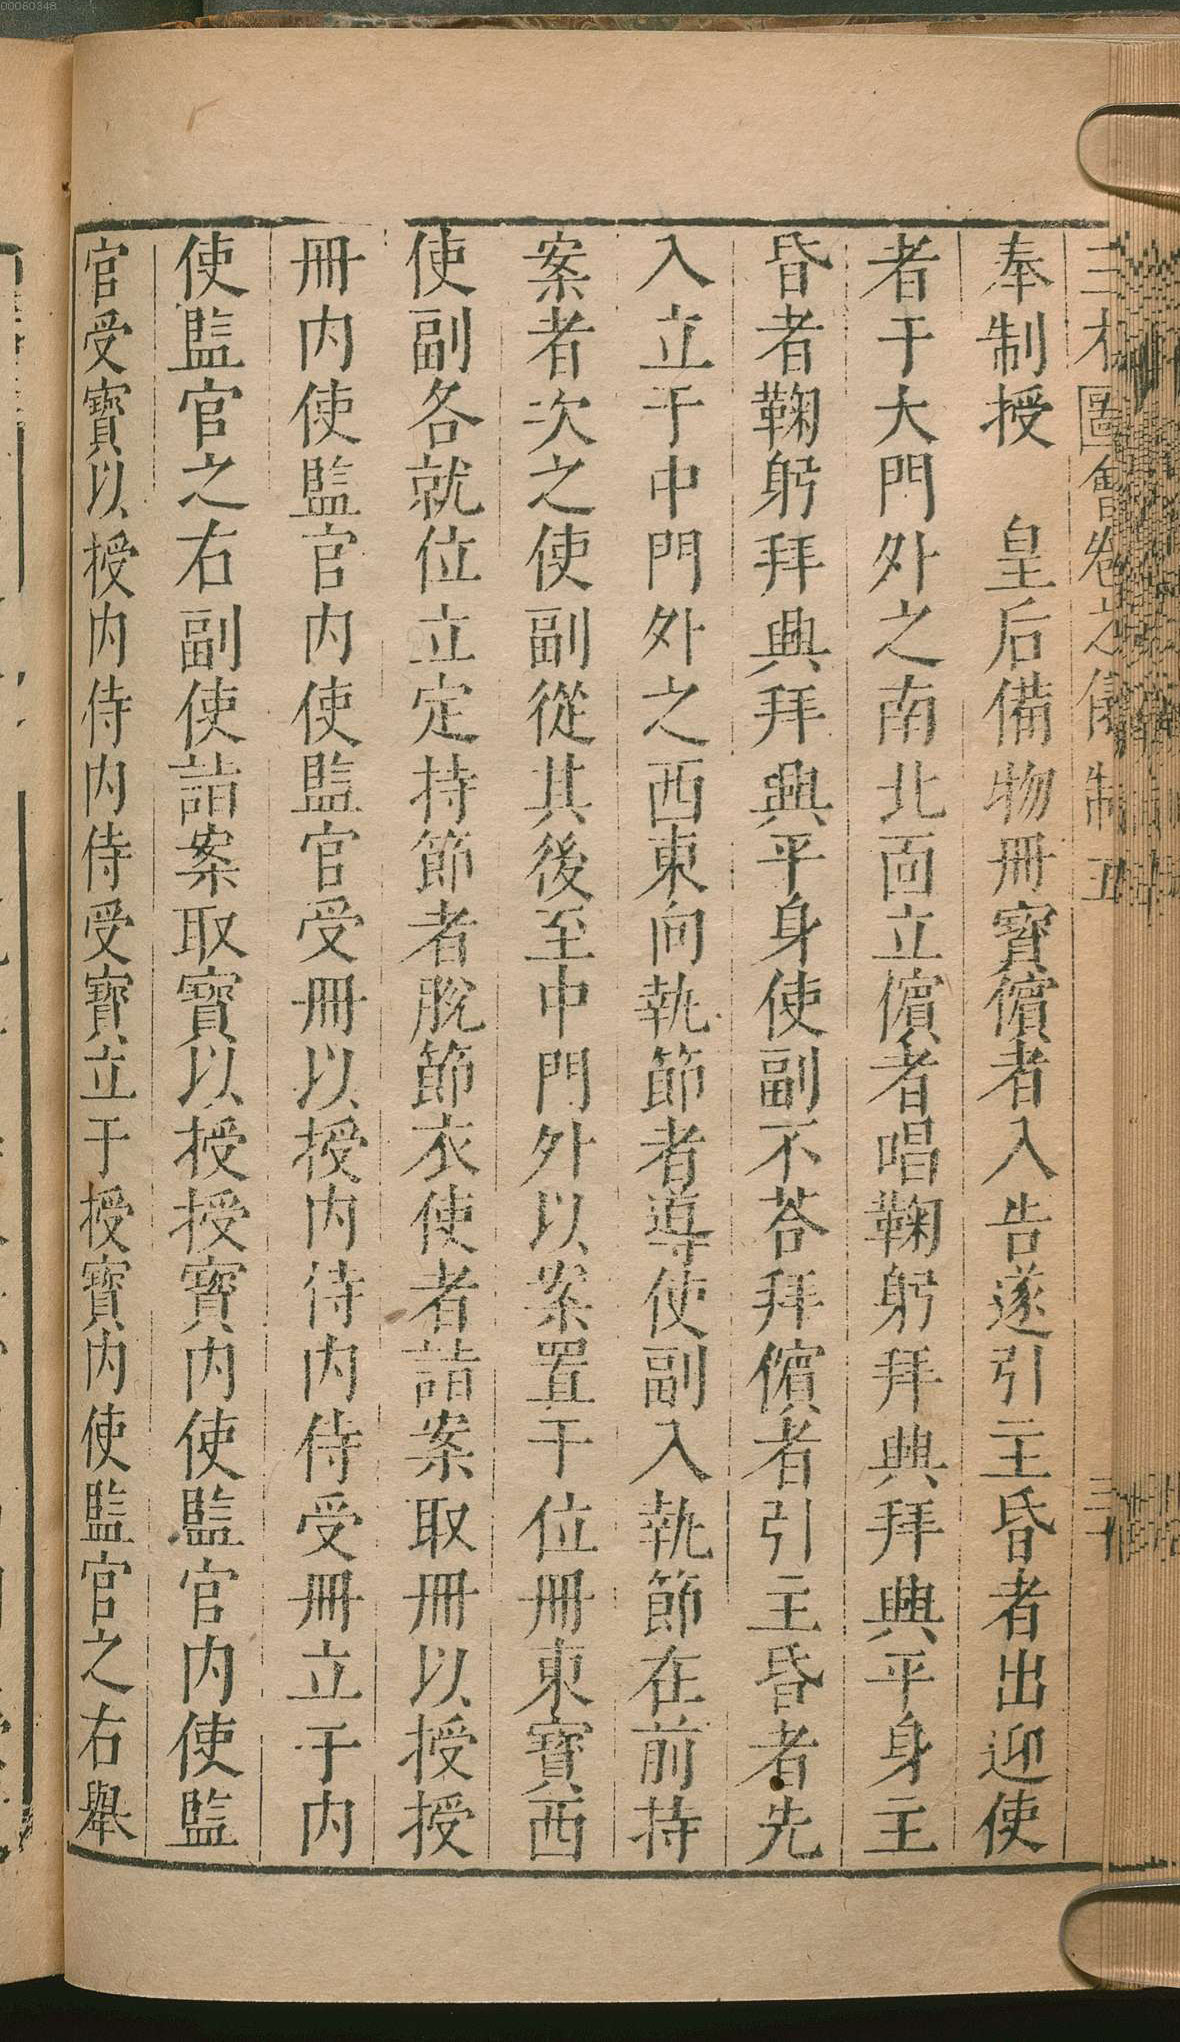 三才圖會卷之儀制五
奉制授　皇后備物冊寳儐者入告遂引主昏者出迎使
者于大門外之南北面立儐者唱鞠躬拜興拜興平身主
昏者鞠躬拜興拜興平身使副不荅拜儐者引主昏者先
入立于中門外之西東向執節者導使副入執節在前持
案者次之使副從其後至中門外以案置于位冊東寳西
使副各就位立定持節者脫節衣使者詣案取冊以授授
冊内使監官内使監官受冊以授内侍内侍受冊立于内
使監官之右副使詣案取寳以授授寳内使監官内使監
官受寳以授内侍内侍受寳立于授寳内使監官之右舉
00060348